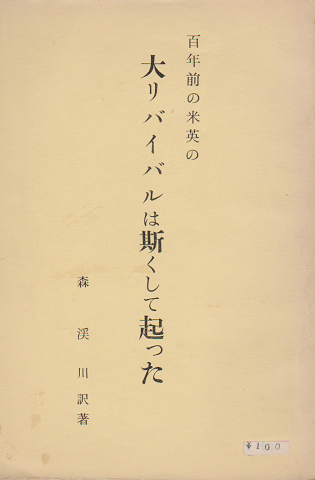 百年前の米英の
大リバイバルは斯くして起った
森渓川訳著
¥100